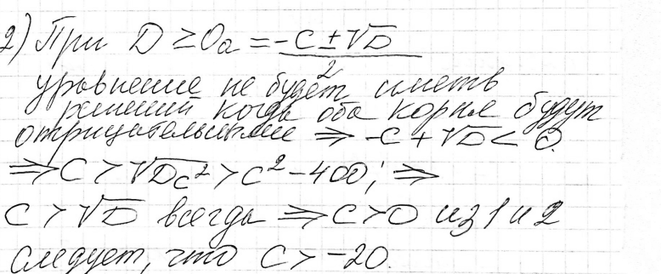 2) При D ≥ 0 a = (-c ± √D) / 2
уравнение не будет иметь
решений когда оба корня будут
отрицательными ⇒ -c + √D < 0.
⇒ c > √D c² > c² - 400; ⇒
c > √D всегда ⇒ c > 0 из 1 и 2
следует, что c > -20.